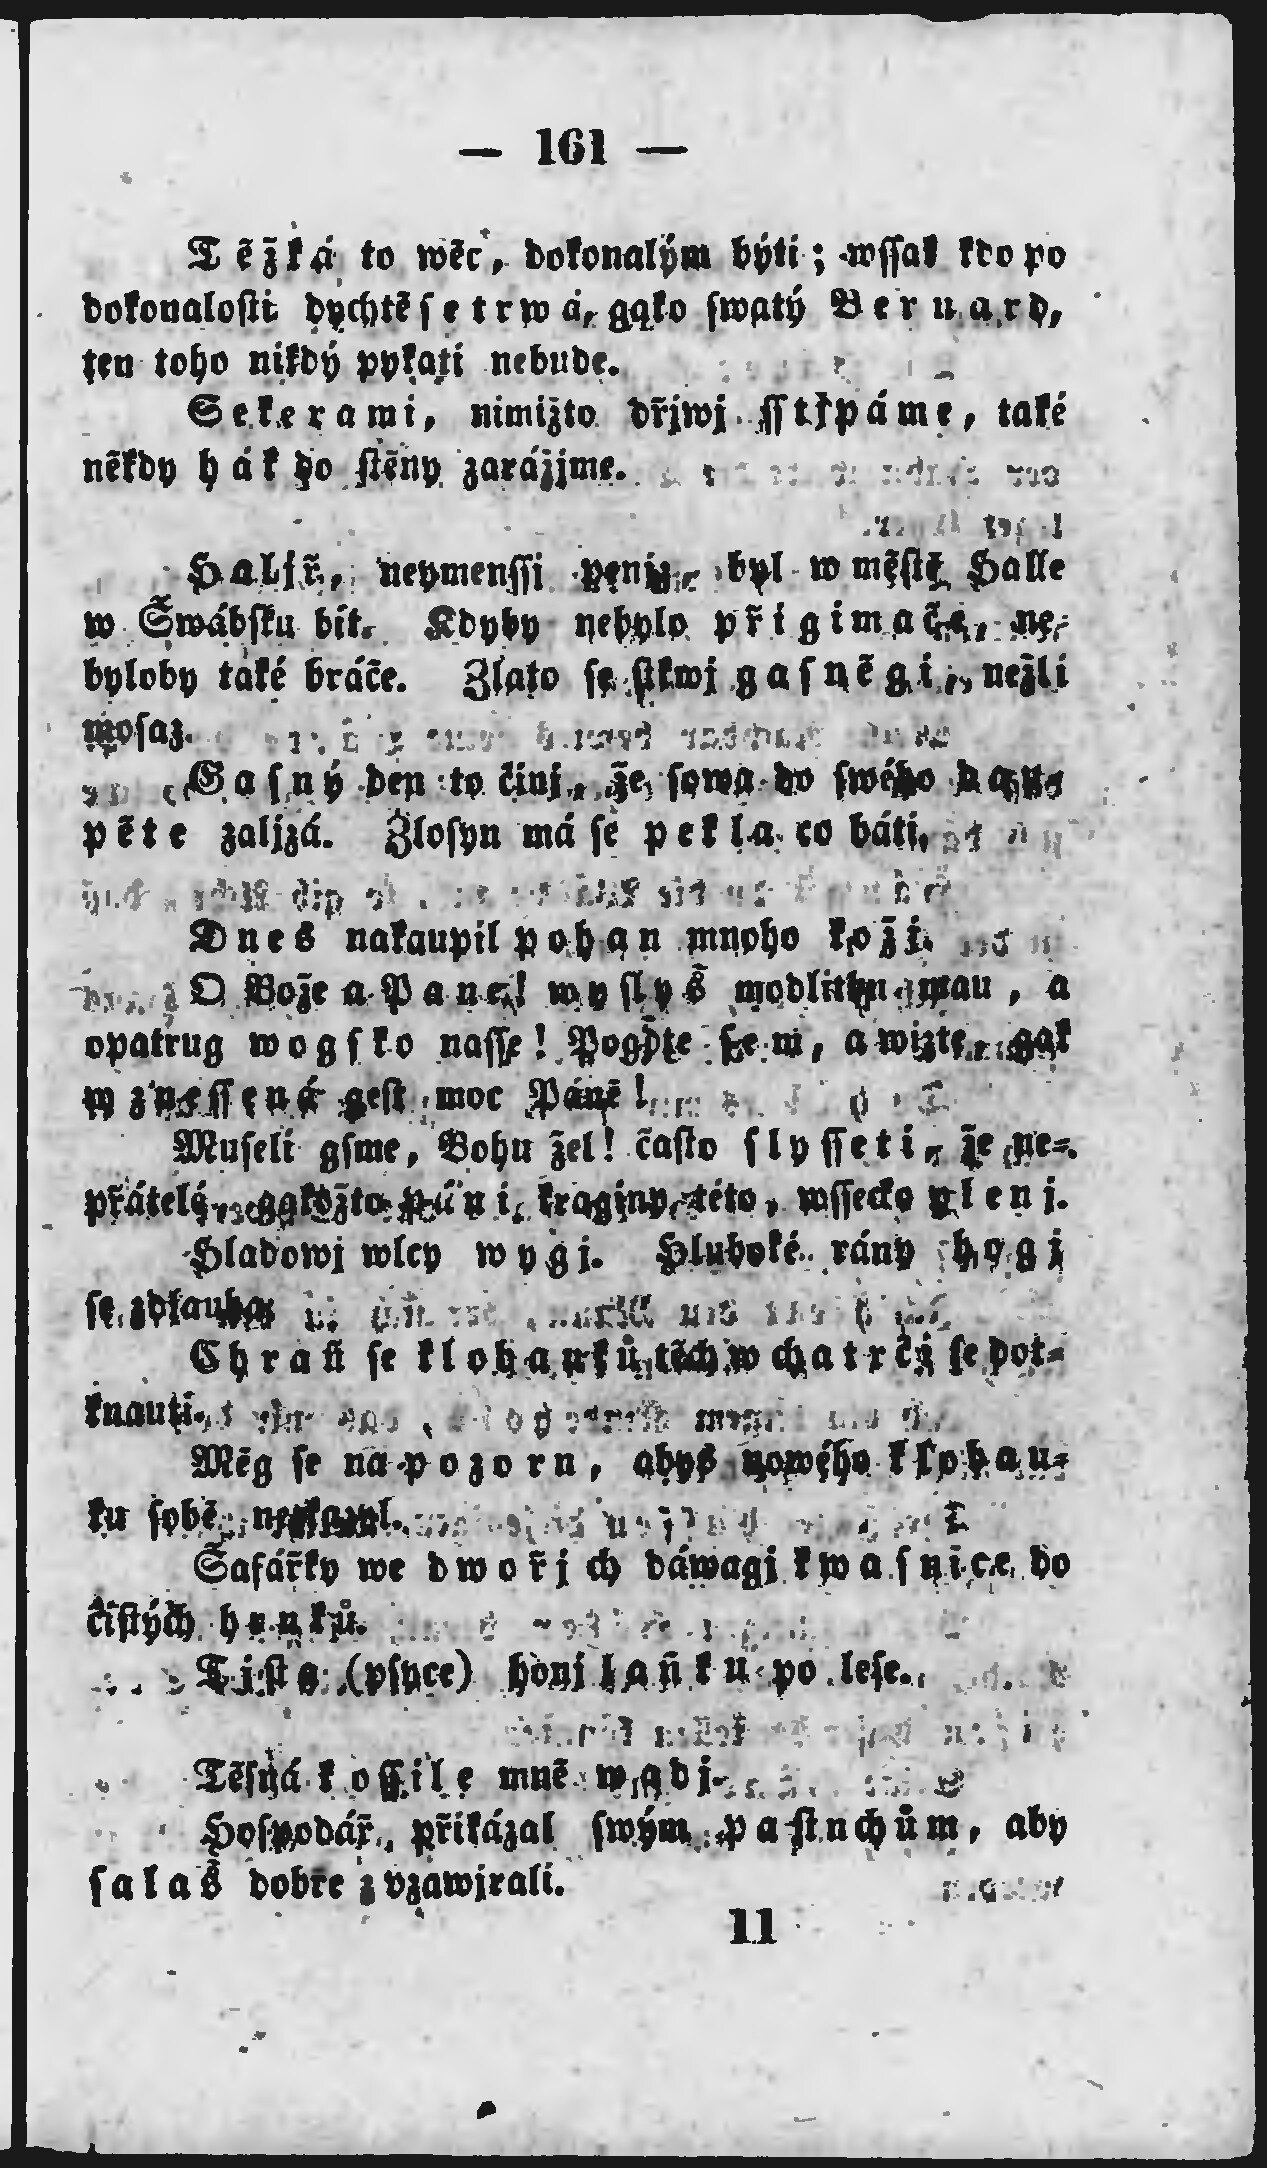 — 161 —
Těžká to wěc, dokonalým býti; wssak kdo po
dokonalosti dychtě setrwá, gako swatý Bernard,
ten toho nikdý pykati nebude.
Sekerami, nimižto dřjwj sstjpáme, také
někdy hák do stěny zarážjme.
Haljř, neymenssi penjz, byl w městě Halle
w Šwábsku bit. Kdyby nebylo přigimače, ne-
byloby také bráče. Zlato se stkwj gasněgi, nežli
mosaz.
Gasný den to činj, že sowa do swého
pěte zaljzá. Zlosyn má se pekla co báti,
Dnes nakaupil pohan mnoho koži.
O Bože a Pane! wyslyš modlitbu mau, a
opatrug wogsko nasse! Pogďte sem, a wizte, gak
wznessená gest moc Páně!
Museli gsme, Bohu žel! často slysseti, že ne-
přátelé, gakožto páni kraginy této, wssecko plenj.
Hladowj wlcy wygj. Hluboké rány hogj
se zdlauha.
Chraň se klobauků těch w chatrčj se dot-
knauti.
Měg se na pozoru, abys nowého klobau-
ku sobě
Šafářky we dwořjch dáwagj kwasnice do
čistých hunků.
Tista (psyce) honj laňku po lese.
Těsná kossile mně wadj.
Hospodář přikázal swým pastuchům, aby
salaš dobře zvzawjrali.
11